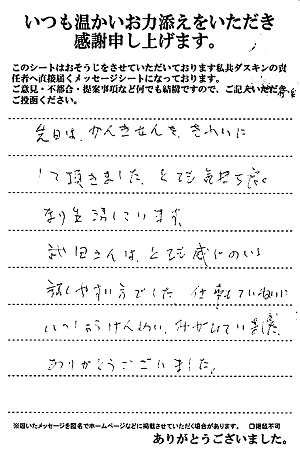 いつも温かいお力添えをいただき
感謝申し上げます。
このシートはおそうじをさせていただいております私共ダスキンの責
任者へ直接届くメッセージシートになっております。
ご意見・不都合・提案事項など何でも結構ですので、ご記入いただき
ご投函ください。
先日は、かんきせんを、きれいに
して頂きました、とても気持ち良く
なり生活しています。
武田さんは、とても感じのいい
話しやすい方でした 仕事も
いっしょうけんめい、
ありがとうございました。
※届いたメッセージを匿名でホームページなどに掲載させていただく場合があります。 □掲載不可
ありがとうございました。